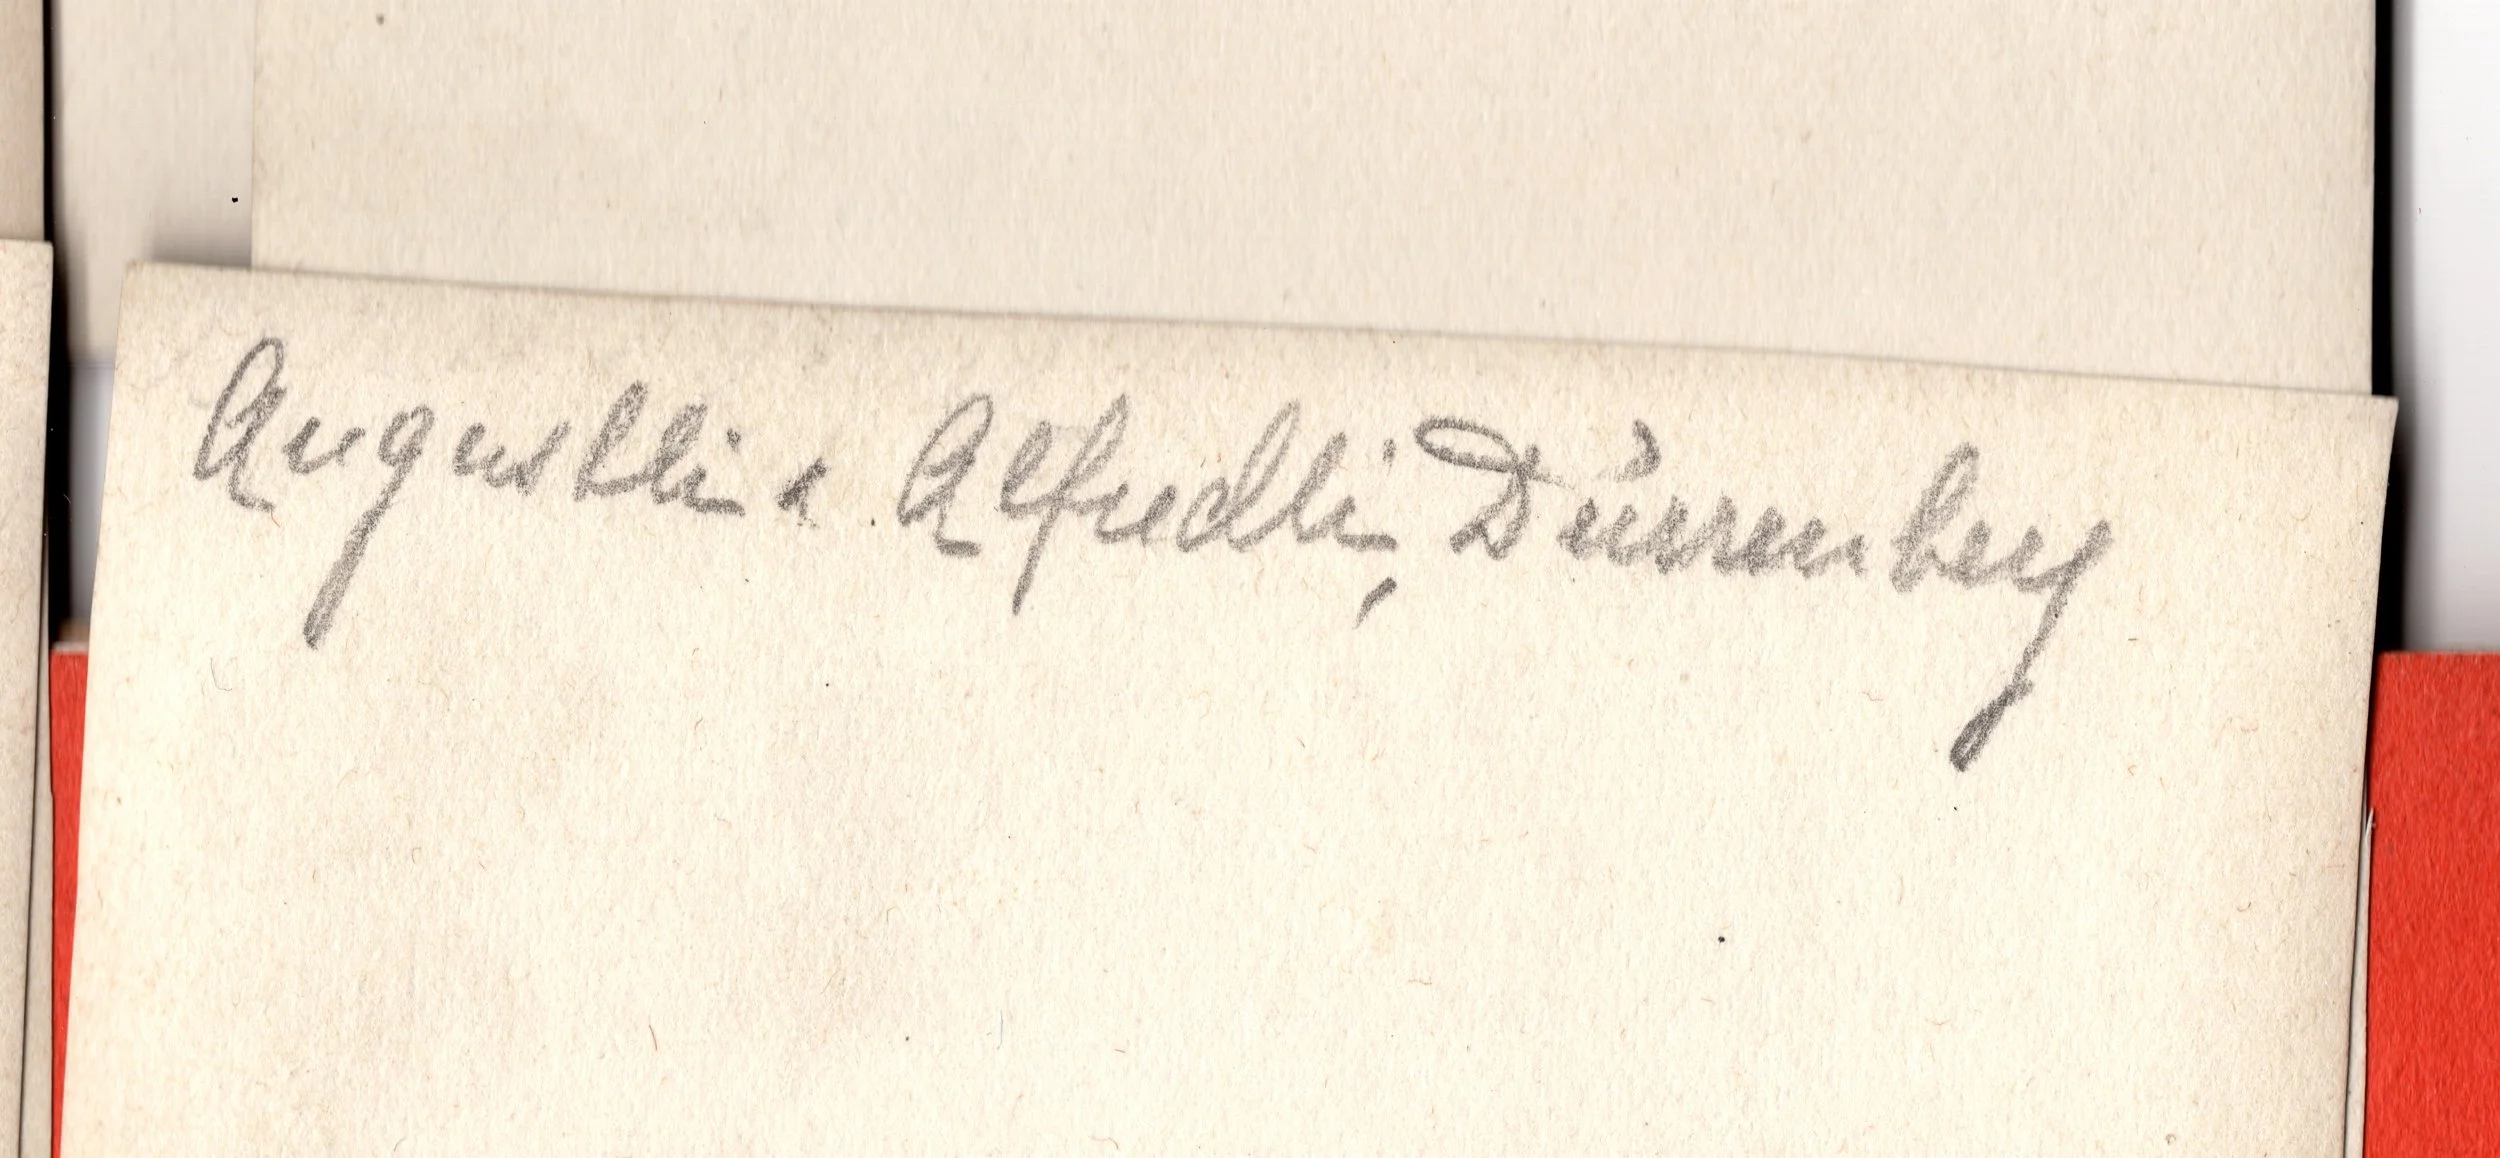 Augustli & Alfredli, Dürrenberg